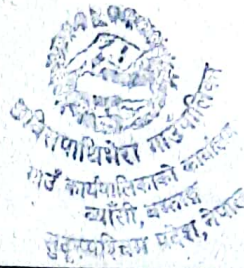 छबिसपाथिभेरा गाउँपालिका
गाउँ कार्यपालिकाको कार्यालय
व्याँसी, बझाङ
सुदूरपश्चिम प्रदेश, नेपाल